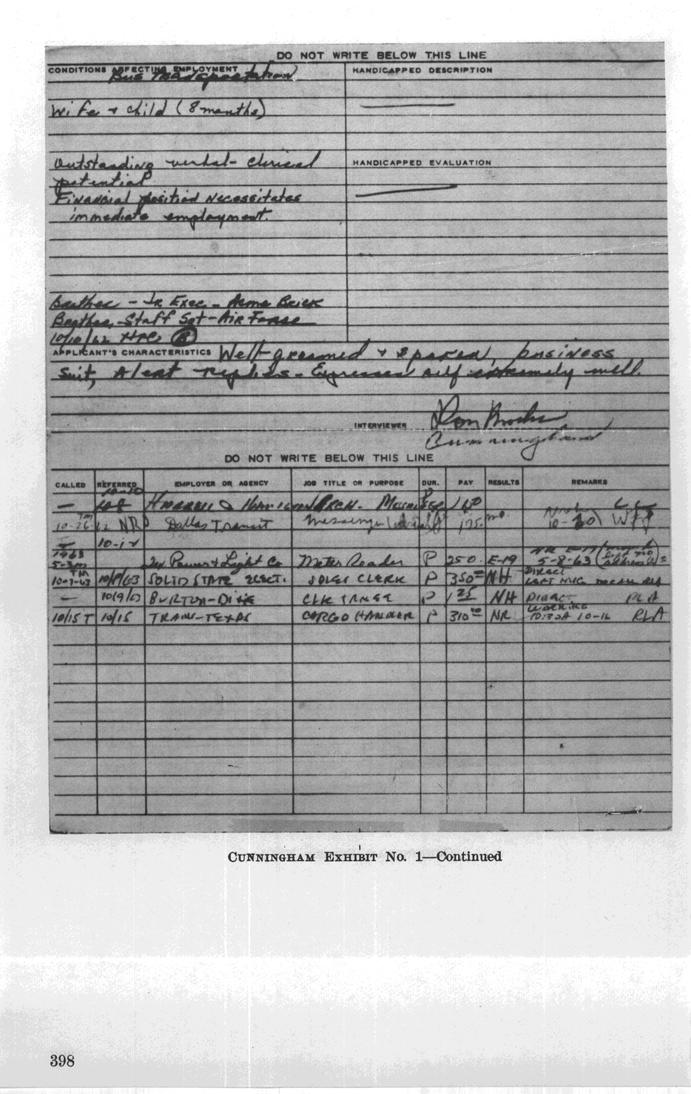 DO NOT WRITE BELOW THIS LINE
CONDITIONS AFFECTING EMPLOYMENT
HANDICAPPED DESCRIPTION
Bus Transportation
Wife + child (8 months)
Outstanding verbal-clerical
potential
HANDICAPPED EVALUATION
Financial position necessitates
immediate employment.
Brother - Jr Exec - Acme Brick
Brother - Staff Sgt - Air Force
10/10/62
APPLICANT'S CHARACTERISTICS Well-groomed & spoken, business
suit, Alert replies - Expresses self extremely well.
INTERVIEWER Don Brooks
Cunningham
DO NOT WRITE BELOW THIS LINE
CALLED REFERRED EMPLOYER OR AGENCY JOB TITLE OR PURPOSE DUR. PAY RESULTS REMARKS
— 10-8 Harrell & Arch. Messenger
10-26-62 NR Dallas Transit Messenger 175 mo. 10-30
10-12
1963
5-3 Tex Power & Light Co Meter Reader P 250 E-19 5-8-63
10-7-63 10/9/63 SOLID STATE ELECT. SALES CLERK P 350 NH DIRECT
LEFT MSG
— 10/9/63 BURTON-DIXIE CLK TRNEE P 1 25 NH DIRECT RLA
10/15 T 10/15 TRANS-TEXAS CARGO HANDLER P 310 NR WORKING 10-16 RLA
CUNNINGHAM EXHIBIT No. 1—Continued
398